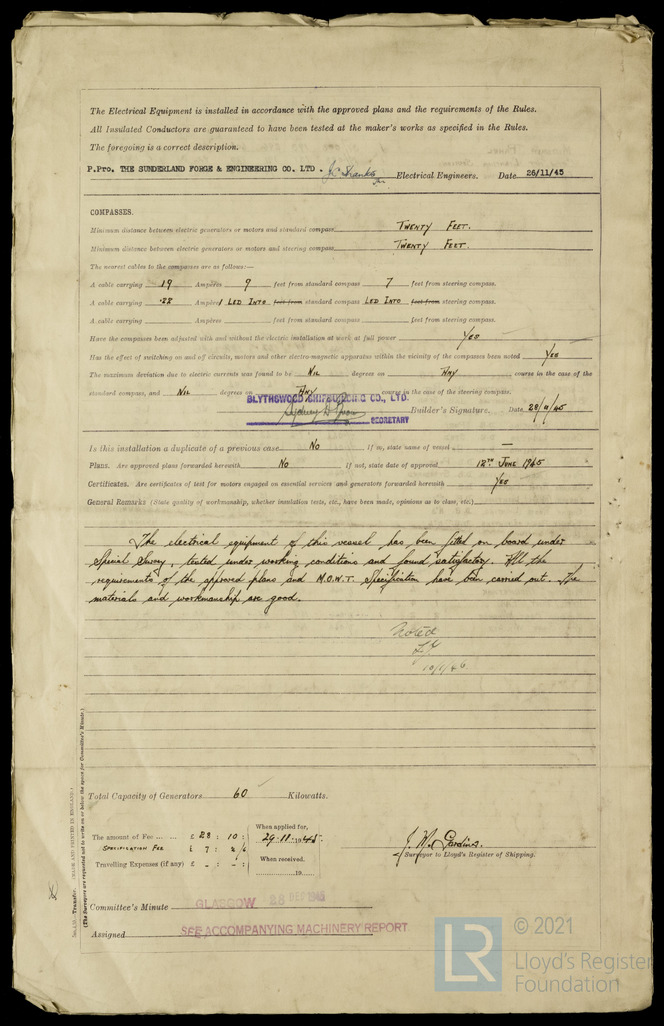 The Electrical Equipment is installed in accordance with the approved plans and the requirements of the Rules.
All Insulated Conductors are guaranteed to have been tested at the maker's works as specified in the Rules.
The foregoing is a correct description.
P.Pro. THE SUNDERLAND FORGE & ENGINEERING CO. LTD. J. Shanks Electrical Engineers. Date 26/11/45
COMPASSES.
Minimum distance between electric generators or motors and standard compass TWENTY FEET.
Minimum distance between electric generators or motors and steering compass TWENTY FEET.
The nearest cables to the compasses are as follows:—
A cable carrying 19 Ampères 9 feet from standard compass 7 feet from steering compass.
A cable carrying .22 Ampères LED INTO feet from standard compass LED INTO feet from steering compass.
A cable carrying Ampères feet from standard compass feet from steering compass.
Have the compasses been adjusted with and without the electric installation at work at full power Yes
Has the effect of switching on and off circuits, motors and other electro-magnetic apparatus within the vicinity of the compasses been noted Yes
The maximum deviation due to electric currents was found to be NIL degrees on ANY course in the case of the
standard compass, and NIL degrees on ANY course in the case of the steering compass.
BLYTHSWOOD SHIPBUILDING CO., LTD.
Sydney D. Builder's Signature. Date 28/11/45
SECRETARY
Is this installation a duplicate of a previous case No If so, state name of vessel —
Plans. Are approved plans forwarded herewith No If not, state date of approval 12TH JUNE 1945
Certificates. Are certificates of test for motors engaged on essential services and generators forwarded herewith Yes
General Remarks (State quality of workmanship, whether insulation tests, etc., have been made, opinions as to class, etc.)
The electrical equipment of this vessel has been fitted on board under
Special Survey, tested under working conditions and found satisfactory. All the
requirements of the approved plans and M.O.W.T. Specification have been carried out. The
materials and workmanship are good.
Noted
10/1/46
Total Capacity of Generators 60 Kilowatts.
The amount of Fee ... ... £ 28 : 10 :
When applied for, 29.11.1945.
SPECIFICATION FEE £ 7 : 2/6
When received,
Travelling Expenses (if any) £ - : - :
19
Surveyor to Lloyd's Register of Shipping.
Committee's Minute GLASGOW 28 DEC 1945
Assigned SEE ACCOMPANYING MACHINERY REPORT.
(MADE AND PRINTED IN ENGLAND.)
(The Surveyors are requested not to write on or below the space for Committee's Minute.)
LR
© 2021
Lloyd's Register
Foundation